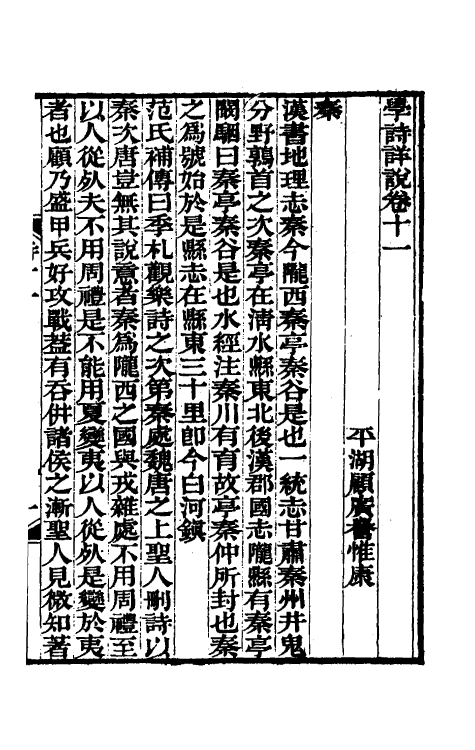 學詩詳說卷十一
平湖顧廣譽惟康
秦
漢書地理志秦今隴西秦亭秦谷是也一統志甘肅秦州井鬼
分野鶉首之次秦亭在清水縣東北後漢郡國志隴縣有秦亭
闞駰曰秦亭秦谷是也水經注秦川有育故亭秦仲所封也秦
之爲號始於是縣志在縣東三十里卽今白河鎮
范氏補傳曰季札觀樂詩之次第秦處魏唐之上聖人刪詩以
秦次唐豈無其說意者秦爲隴西之國與戎雜處不用周禮至
以人從死夫不用周禮是不能用夏變夷以人從死是變於夷
者也顧乃盛甲兵好攻戰葢有吞併諸侯之漸聖人見微知著